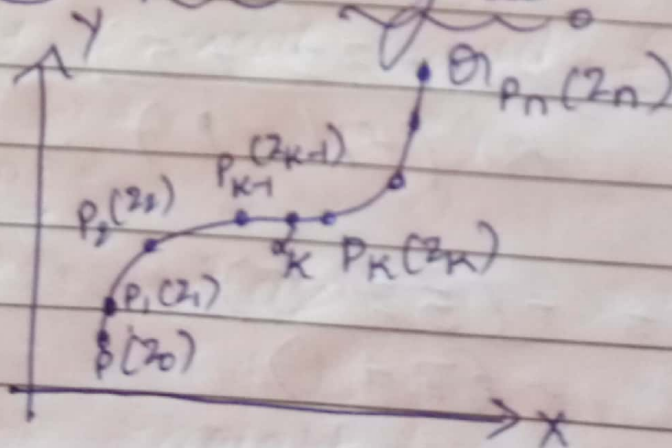 Y
Q Pn(zn)
Pk-1(zk-1)
P2(z2)
αk Pk(zk)
P1(z1)
P(z0)
X